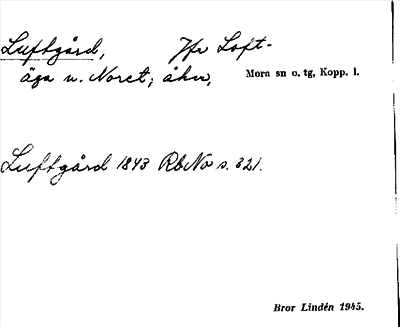 Luftgård, Jfr Loft-
äga u. Noret; åkrar, Mora sn o. tg, Kopp. l.
Luftgård 1843 RbNo s. 321.
Bror Lindén 1945.